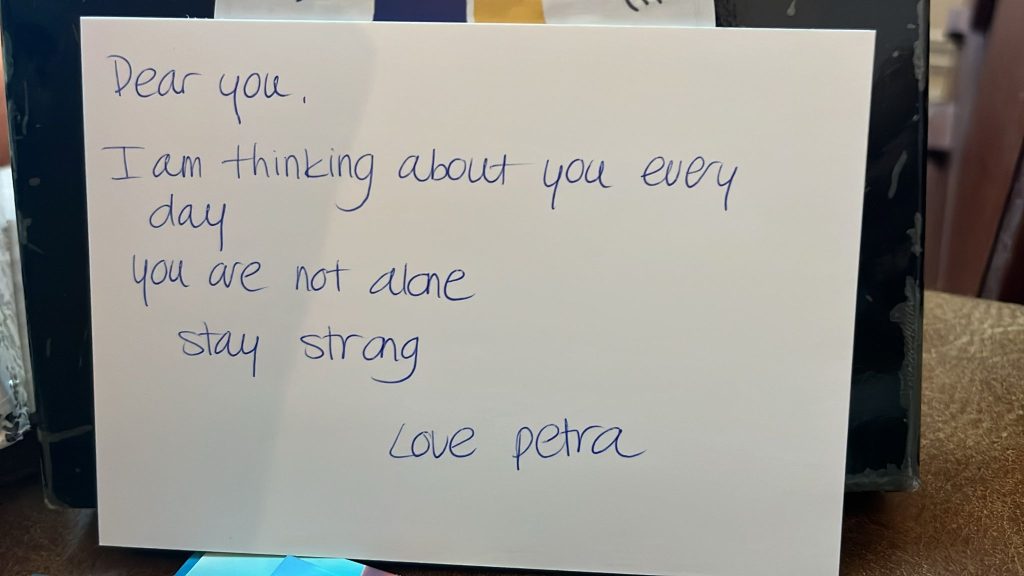 Dear you,
I am thinking about you every
day
you are not alone
stay strong
Love petra